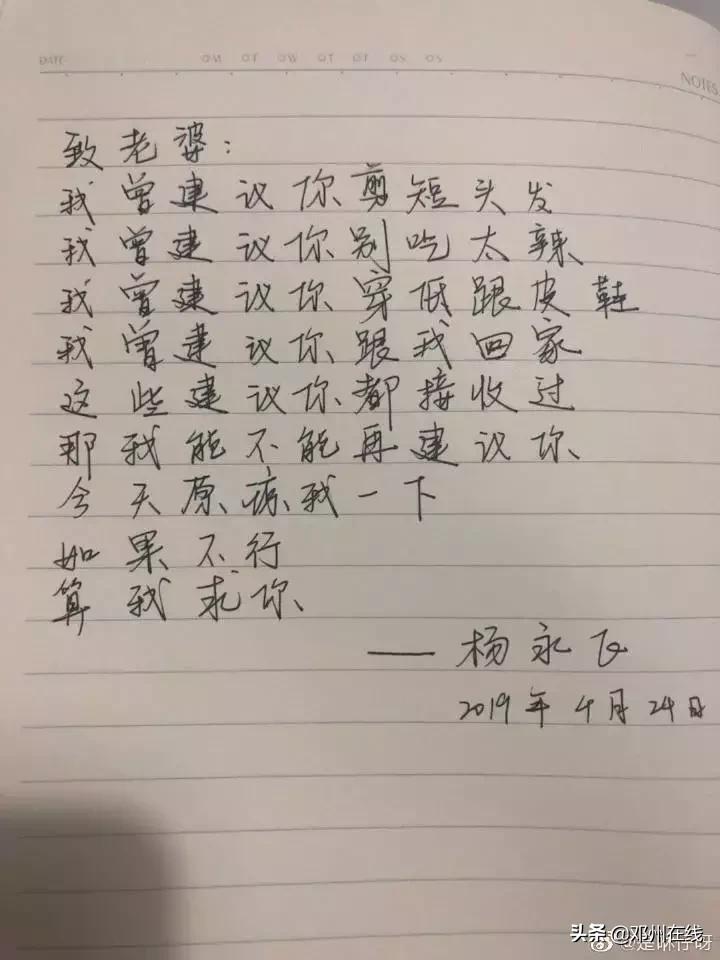 DATE MO TU WE TH FR SA SU
NOTES
致老婆：
我曾建议你剪短头发
我曾建议你别吃太辣
我曾建议你穿低跟皮鞋
我曾建议你跟我回家
这些建议你都接收过
那我能不能再建议你
今天原谅我一下
如果不行
算我求你
——杨永飞
2019年4月24日
头条@邓州在线